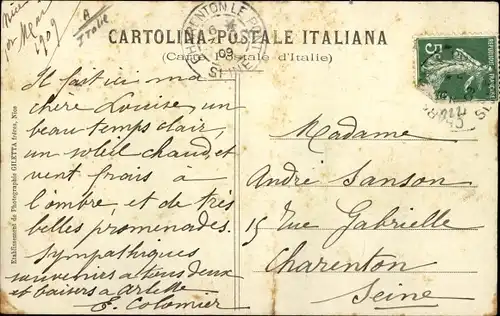 Nice
1909
A
Italie
CHARENTON LE PONT
09
SEINE
CARTOLINA POSTALE ITALIANA
(Carte postale d'Italie)
5c
Etablissement de Photographie GILETTA frères, Nice
Il fait ici ma
chere Louise un
beau temps clair,
un soleil chaud, et
vent frais a
l'ombre, et de très
belles promenades.
Sympathiques
souvenirs a tous deux
et baisers a Arlette
E. Colomier
Madame
André Sanson
15 Rue Gabrielle
Charenton
Seine